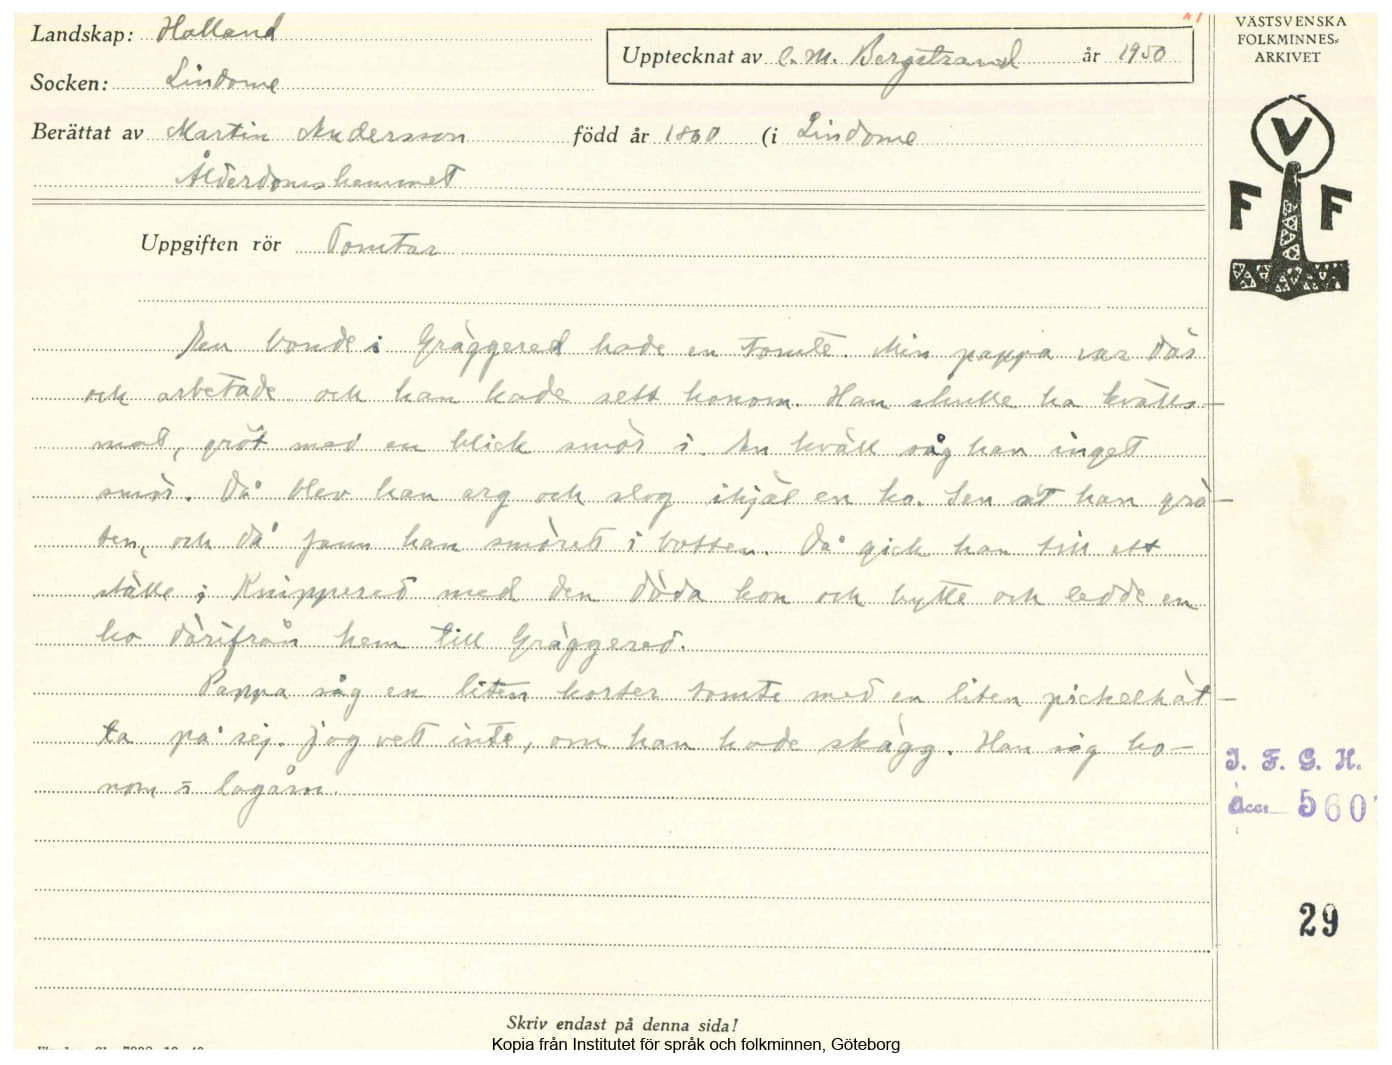 Landskap: Halland
Socken: Lindome
Upptecknat av C. M. Bergstrand år 1950
Berättat av Martin Andersson född år 1860 (i Lindome
Ålderdomshemmet
Uppgiften rör Tomtar
En bonde i Gräggered hade en tomte. Min pappa var där
och arbetade och han hade sett honom. Han skulle ha kvälls-
mat, gröt med en klick smör i. En kväll såg han inget
smör. Då blev han arg och slog ihjäl en ko. Sen åt han grö-
ten, och då fann han smöret i botten. Då gick han till ett
ställe i Knippered med den döda kon och bytte och ledde en
ko därifrån hem till Gräggered.
Pappa såg en liten korter tomte med en liten pickelhät-
ta på sej. Jag vet inte, om han hade skägg. Han såg ho-
nom i lagårn.
VÄSTSVENSKA
FOLKMINNES-
ARKIVET
V
F F
I. F. G. H.
Acc. 5607
29
Skriv endast på denna sida!
Kopia från Institutet för språk och folkminnen, Göteborg